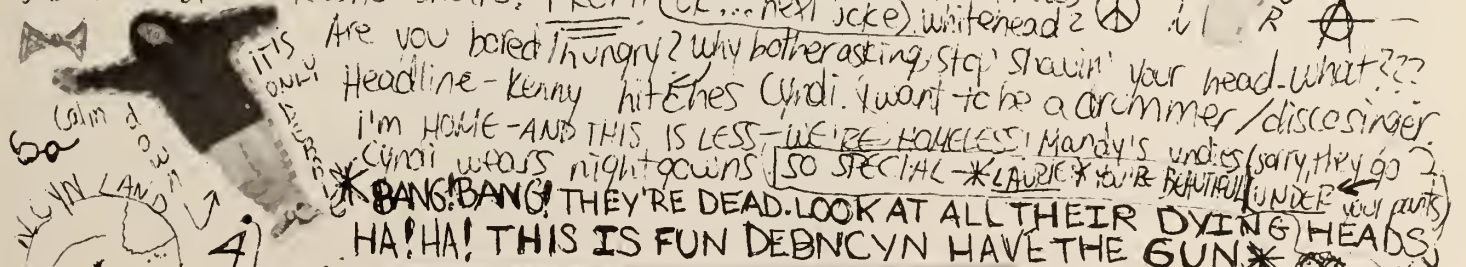 (ck... next joke). whitehead?
Are you bored/hungry? Why bother asking, stop shavin' your head-what???
Headline-Kenny hitches Cyndi. i want to be a drummer/discosinger.
i'm HOME-AND THIS IS LESS-WE'RE HOMELESS! Mandy's undies (sorry, they go
Cyndi wears nightgowns SO SPECIAL-*LAURIE* YOU'RE BEAUTIFUL UNDER your pants)
*BANG! BANG! THEY'RE DEAD. LOOK AT ALL THEIR DYING HEADS,
HA! HA! THIS IS FUN DEBNCYN HAVE THE GUN*
IT'S
ONLY
calm down
6a
NCYN LAND
4)